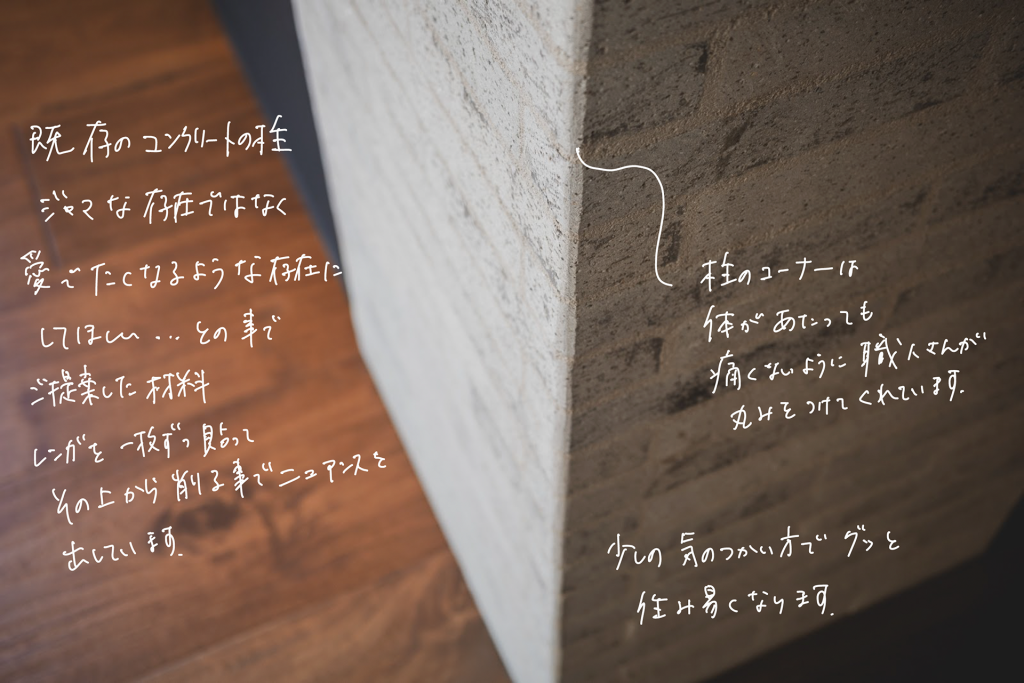 既存のコンクリートの柱
ジャマな存在ではなく
愛でたくなるような存在に
してほしい…との事で
ご提案した材料
レンガを一枚ずつ貼って
その上から削る事でニュアンスを
出しています。
柱のコーナーは
体があたっても
痛くないように職人さんが
丸みをつけてくれています。
少しの気のつかい方でグッと
住み易くなります。